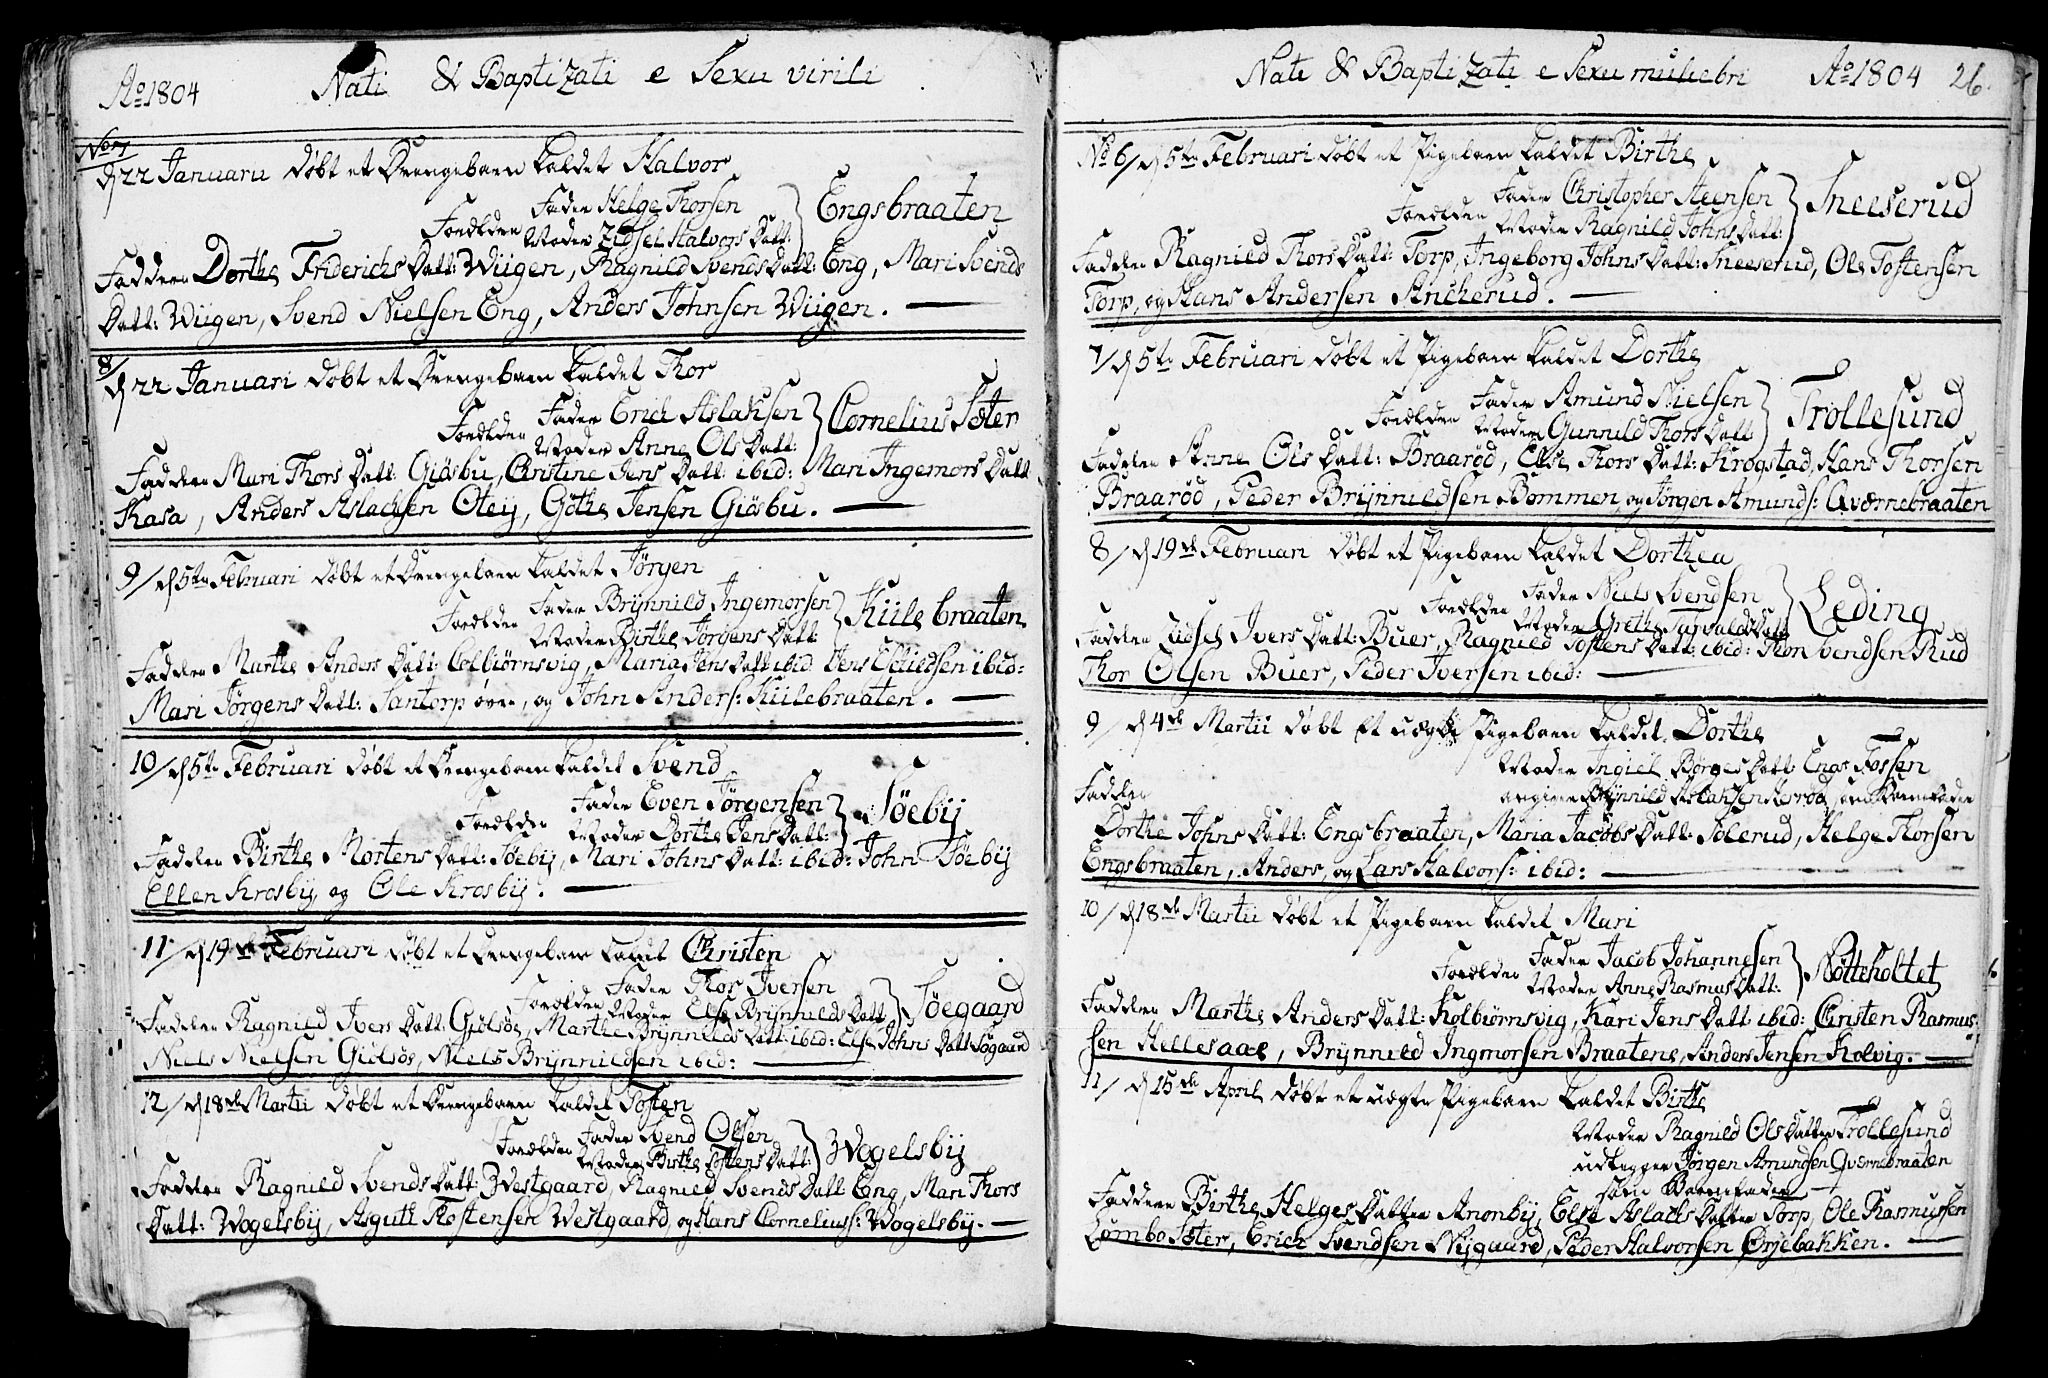 Ao 1804 Nati & Baptizati e Sexu virili
No 7
d 22 Januarii døbt et Drengebarn kaldet Halvor
Forældre Fader Helge Thorsen
Moder Zidsel Halvors Datt: Engsbraaten
Faddere Dorthe Friderichs Datt: Wiigen, Ragnild Svends Datt: Eng, Mari Svends
Datt: Wiigen, Svend Nielsen Eng, Anders Johnsen Wiigen.
8/
d 22 Januari døbt et Drengebarn kaldet Thor
Forældre Fader Erich Aslaksen
Moder Anne Ols Datt: Cornelius Sæter
Fadder Mari Thors Datt: Giøsbu, Christine Jens Datt: ibid: Mari Ingemors Datt
Kasa, Anders Aslachsen Oteij, Göthe Jensen Giøsbu.
9/ d 5te Februari døbt et Drengebarn kaldet Jörgen
Forældre Fader Brÿnnild Ingemorsen
Moder Birthe Jörgens Datt: Kiilebraaten
Fadder Marthe Anders Datt: Colbiørnsvig, Maria Jens Datt ibid Jens ibid:
Mari Jörgens Datt: Santorp øvre, og John Anders: Kiilebraaten.
10/ d 5te Februari døbt et Drengebarn kaldet Svend
Forældre Fader Even Jörgensen
Moder Dorthe Jens Datt: Söebÿ
Fadder Birthe Mortens Datt: Söebÿ, Mari Johns Datt: ibid: John Söebÿ
Ellen Krosbÿ, og Ole Krosbÿ.
11/ d 19de Februari døbt et Drengebarn kaldet Christen
Forældre Fader Thor Iversen
Moder Else Brÿnnilds Datt Söegaard
Fadder Ragnild Ivers Datt: Giølsøe, Marthe Brÿnnilds Datt: ibid: Else Johns Datt Sögaard
Niels Nielsen Giølsøe, Niels Brÿnnildsen ibid:
12/ d 18de Martii døbt et Drengebarn kaldet Tosten
Forældre Fader Svend Olsen
Moder Birthe Tostens Datt: Wogelsbÿ
Fadder Ragnild Svends Datt: Westgaard, Ragnild Svends Datt Eng, Mari Thors
Datt: Wogelsbÿ, Asguth Tostensen Westgaard, og Hans Corneliuss: Wogelsbÿ.
Nati & Baptizati e Sexu muliebri Ao 1804 26
No 6/ d 5te Februari døbt et Pigebarn kaldet Birthe
Forældre Fader Christopher Steensen
Moder Ragnild Johns Datt: Sneeserud
Fadder Ragnild Thors Datt: Torp, Ingeborg Johns Datt: Sneeserud, Ole Tostensen
Torp, og Hans Andersen Ancherud.
7/ d 5te Februari døbt et Pigebarn kaldet Dorthe
Forældre Fader Amund Nielsen
Moder Gunnild Thors Datt Trollesund
Fadder Anne Ols Datt: Braarød, Else Thors Datt: Krogstad, Hans Thorsen
Braarød, Peder Brÿnnildsen Bommen, og Jörgen Amunds: Qværnebraaten
8/ d 19de Februari døbt et Pigebarn kaldet Dorthea
Forældre Fader Niels Svendsen
Moder Grethe Tarvalds Datt Leding
Fadder Zidsel Ivers Datt: Buer, Ragnild Tostens Datt: ibid: Thor Svendsen Rud
Thor Olsen Buer, Peder Iversen ibid:
9/ d 4de Martii døbt et uægte Pigebarn kaldet Dorthe
Moder Ingiel Börges Datt: Engs Tossen
Fadder angiver Brÿnnild Aslaksen som Barnefader
Dorthe Johns Datt: Engsbraaten, Maria Jacobs Datt: Solerud, Helge Thorsen
Engsbraaten, Anders, og Lars Halvors: ibid:
10/ d 18de Martii døbt et Pigebarn kaldet Mari
Forældre Fader Jacob Johannesen
Moder Anne Rasmus Datt: Nötteholtet
Fadder Marthe Anders Datt: Kolbiørnsvig, Kari Jens Datt: ibid: Christen Rasmus:
sen Hellesaae, Brÿnnild Ingmorsen Braatene, Anders Jensen Kolvig.
11/ d 15de April døbt et uægte Pigebarn kaldet Birthe
Moder Ragnild Ols Datter Trollesund
udlegger Jörgen Amundsen Qvernebraaten
som Barnefader
Faddere Birthe Helges Datter Anonbÿ, Else Aslachs Datter Torp, Ole Rasmussen
Lombo Sæter, Erich Svendsen Nÿgaard, Peder Halvorsen Ørjebakken.